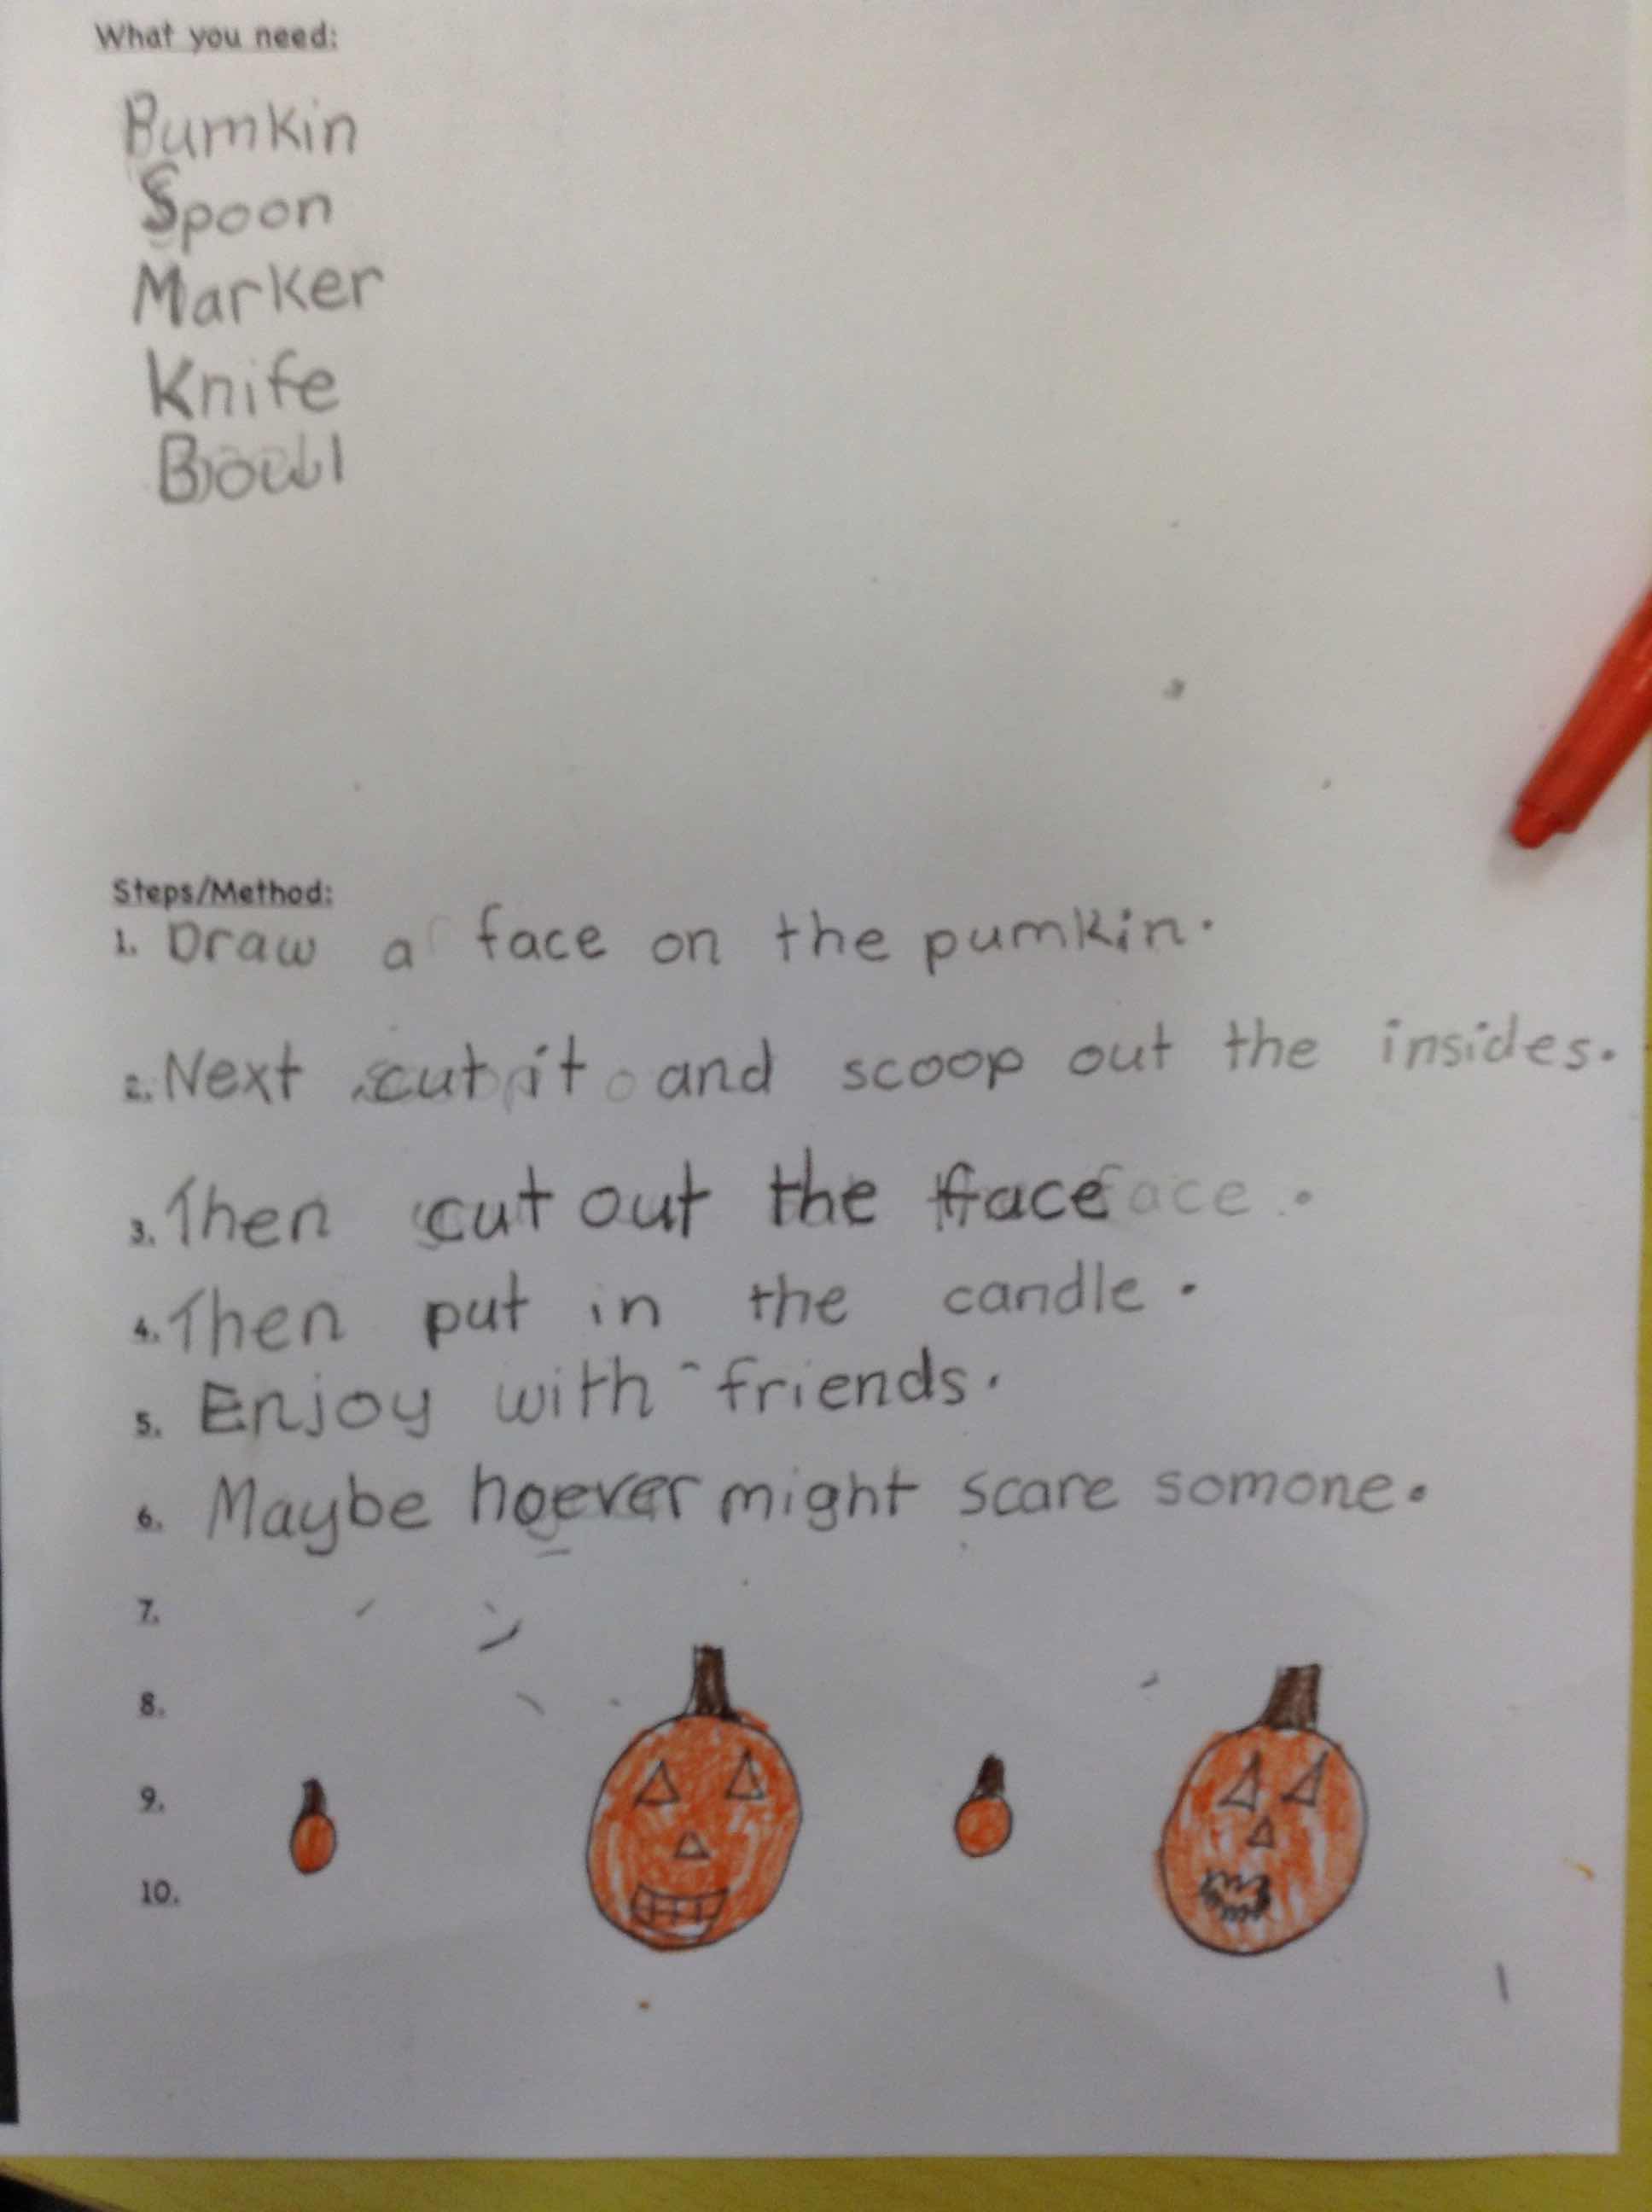 What you need:
Pumkin
Spoon
Marker
Knife
Bowl
Steps/Method:
1. Draw a face on the pumkin.
2. Next cut it and scoop out the insides.
3. Then cut out the face.
4. Then put in the candle.
5. Enjoy with friends.
6. Maybe hoever might scare somone.
7.
8.
9.
10.